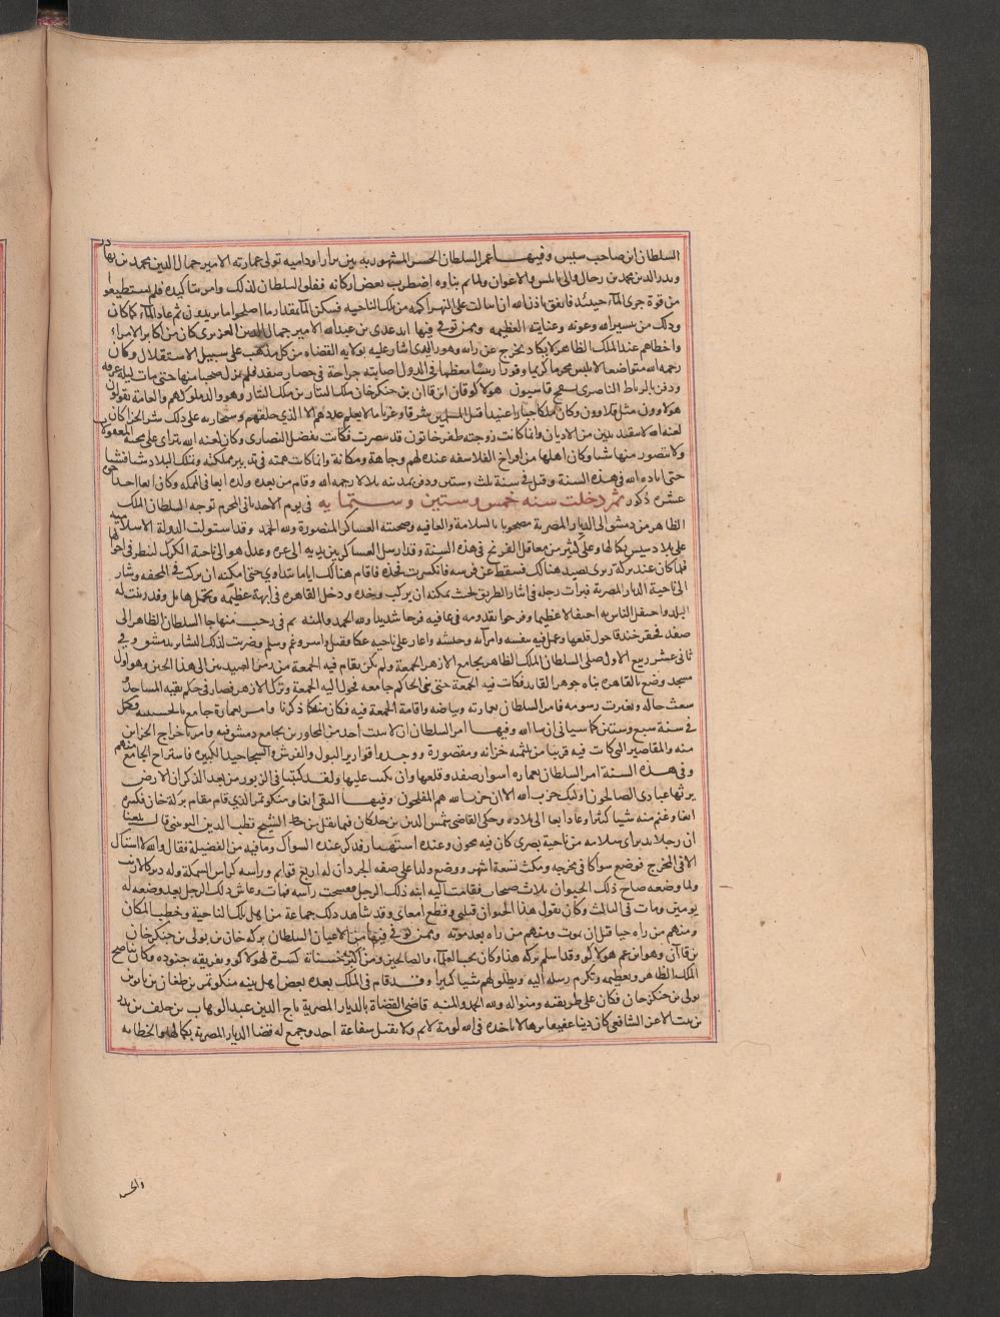 السلطان ابن صاحب سيس وفيها عمر السلطان الجسر المشهور به بين قرارا وداميه تولى عمارته الامير جمال الدين محمد بن بهادر
وبدر الدين محمد بن رحال والى نابلس والاغوار ولما تم بناوه اضطرب بعض اركانه فقلق السلطان لذلك وامر بتاكيده فلم يستطيعوا
من قوة جرى الماء حينئذ فاتفق باذن الله ان سالت على النهر اكمه من تلك الناحيه فسكن الماء بمقدار ما اصلحوا ما يريدون ثم عاد الماء كما كان
وذلك من تيسير الله وعونه وعنايته العظيمه وممن توفى فيها ايدغدى بن عبد الله الامير جمال الدين العزيزى كان من اكابر الامراء
واحظاهم عند الملك الظاهر لا يكاد يخرج عن رايه وهو الذى اشار عليه بولايه القضاه من كل مذهب على سبيل الاستقلال وكان
رحمه الله متواضعا لا يلبس محرما كريما وقورا رييسا معظما فى الدول اصابته جراحة فى حصار صفد فلم يزل ضعيفا منها حتى مات ليلة عرفه
ودفن بالرباط الناصرى بسفح قاسيون هولاكوقان ابن قاان بن جنكزخان ملك التتار بن ملك التتار وهو والد ملوكهم والعامة يقولون
هولاوون مثل قلاوون وكان ملكا جبارا عنيدا قتل المسلمين شرقا وغربا ما لا يعلم عددهم الا الذى خلقهم وسيجازيه على ذلك شر الجزا كان
لعنه الله لا يتقيد بدين من الاديان وانما كانت زوجته ظفر خاتون قد تنصرت فكانت تفضل النصارى وكان لعنه الله يترامى على محبة المعقولات
ولا يتصور منها شيا وكان اهلها من افراخ الفلاسفه عنده لهم وجاهة ومكانة وانما كانت همته فى تدبير مملكته وتملك البلاد شيا فشيا
حتى اباده الله فى هذه السنة وقيل فى سنة ثلث وستين ودفن بمدينه تلا لا رحمه الله وقام من بعده ولده ابغا فى الملك وكان ابغا احد اخوة
عشره ذكور ثم دخلت سنه خمس وستين وستمايه فى يوم الاحد ثانى المحرم توجه السلطان الملك
الظاهر من دمشق الى الديار المصرية مصحوبا بالسلامة والعافيه وصحبته العساكر المنصورة ولله الحمد وقد استولت الدولة الاسلاميه
على بلاد سيس بكمالها وعلى كثير من معاقل الفرنج فى هذه السنة وقد ارسل العساكر بين يديه الى غزه وعدل هو الى ناحية الكرك لينظر فى احوالها
فلما كان عند بركة زيزى تصيد هنالك فسقط عن فرسه فانكسرت فخذه فاقام هنالك اياما يتداوى حتى امكنه ان يركب فى المحفه وسار
الى ناحية الديار المصرية فبرات رجله فى اثناء الطريق بحيث تمكنه ان يركب وحده ودخل القاهره فى ابهة عظيمه وتجمل هايل وقد زينت له
البلد واحتفل الناس به احتفالا عظيما وفرحوا بقدومه فى عافيه فرحا شديدا ولله الحمد والمنه ثم فى رجب منها جا السلطان الظاهر الى
صفد فحفر خندقا حول قلعتها وعمل فيه بنفسه وامرآيه وجيشه واغار على ناحيه عكا وقتل واسر وغنم وسلم وضربت لذلك البشاير بدمشق وفى
ثانى عشر ربيع الاول صلى السلطان الملك الظاهر بجامع الازهر الجمعة ولم يكن يقام فيه الجمعة من زمن العبيديين الى هذا الحين وهو اول
مسجد وضع بالقاهره بناه جوهر القايد فكانت فيه الجمعة حتى بنى الحاكم جامعه فحول اليه الجمعة وترك الازهر فصار فى حكم بقيه المساجد
سعث حاله وتغيرت رسومه فامر السلطان بعمارته وبياضه واقامة الجمعة فيه فكان من كما ذكرنا وامر بعمارة جامع بالحسينيه وكمل
فى سنة سبع وستين كما سياتى ان شا الله وفيها امر السلطان ان لا يبيت احد من المجاورين بجامع دمشق فيه وامر باخراج الخزاين
منه والمقاصير التى كانت فيه قريبا من ثلثمه خزانه ومقصورة ووجدوا قوارير البول والفرش والسجاجيد الكبيرة فاستراح الجامع منهم
وفى هذه السنة امر السلطان بعماره اسوار صفد وقلعتها وان يكتب عليها ولقد كتبنا فى الزبور من بعد الذكر ان الارض
يرثها عبادى الصالحون اوليك حزب الله الا ان حزب الله هم المفلحون وفيها التقى ابغا ومنكوتمر الذى قام مقام بركة خان فكسره
ابغا وغنم منه شيا كثيرا وعاد ابغا الى بلاده وحكى القاضى شمس الدين بن خلكان فيما نقل من خط الشيخ قطب الدين اليونينى قال بلغنا
ان رجلا بدير ابى سلامه من ناحية بصرى كان فيه مجون وعنده استهتار فذكر عنده السواك وما فيه من الفضيلة فقال والله لا استاك
الا فى المخرج فوضع سواكا فى مخرجه ومكث تسعة اشهر ووضع ولدا على صفه الجردان له اربع قوايم وراسه كراس السمكة وله دبر كالارنب
ولما وضعه صاح ذلك الحيوان ثلاث صيحات فقامت اليه ابنه ذلك الرجل فرضحت راسه فمات وعاش ذلك الرجل بعد وضعه له
يومين ومات فى الثالث وكان يقول هذا الحيوان قتلنى وقطع امعاى وقد شاهد ذلك جماعة من اهل تلك الناحية وخطبا المكان
ومنهم من راه حيا قبل ان يموت ومنهم من راه بعد موته وممن توفى فيها من الاعيان السلطان بركه خان بن بولى بن جنكزخان
بن قاآن وهو ابن عم هولاكو وقد اسلم بركه هذا وكان يحب العلماء والصالحين ومن اكبر حسناته كسره لهولاكو وتفريقه جنوده وكان يناصح
الملك الظاهر ويعظمه ويكرم رسله اليه ويطلق لهم شيا كثيرا وقد قام فى الملك بعده بعض اهل بيته منكوتمر بن طغان بن باتو بن
بولى بن جنكزخان فكان على طريقته ومنواله ولله الحمد والمنه قاضى القضاة بالديار المصرية تاج الدين عبد الوهاب بن خلف بن بدر
بن بنت الاعز الشافعى كان دينا عفيفا نزها لا ياخذه فى الله لومة لايم ولا يقبل شفاعة احد وجمع له قضا الديار المصرية بكمالها والخطابه